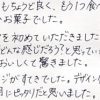 もちょうど良く、もう1つ食べ
いお菓子でした。
を初めていただきました
どんな感じだろう?と思ってい
おいしくて驚きました。
ジがすてきでした。デザイン
月にピッタリだと思いました。